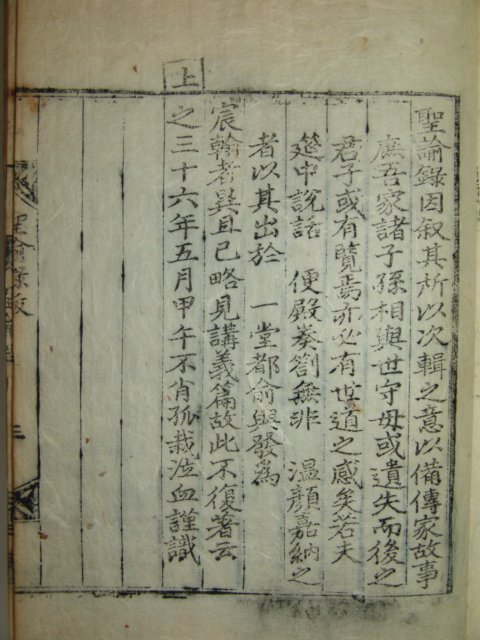 聖諭錄因叙其所以次輯之意以備傳家故事
庶吾家諸子孫相與世守毋或遺失而後之
君子或有覽焉亦必有世道之感矣若夫
筵中說話 便殿奏劄無非 溫顔嘉納之
者以其出於 一堂都俞與發爲
宸翰者異且已略見講義篇故此不復著云
上
之三十六年五月甲午不肖孤栽泣血謹識
聖諭錄跋
三